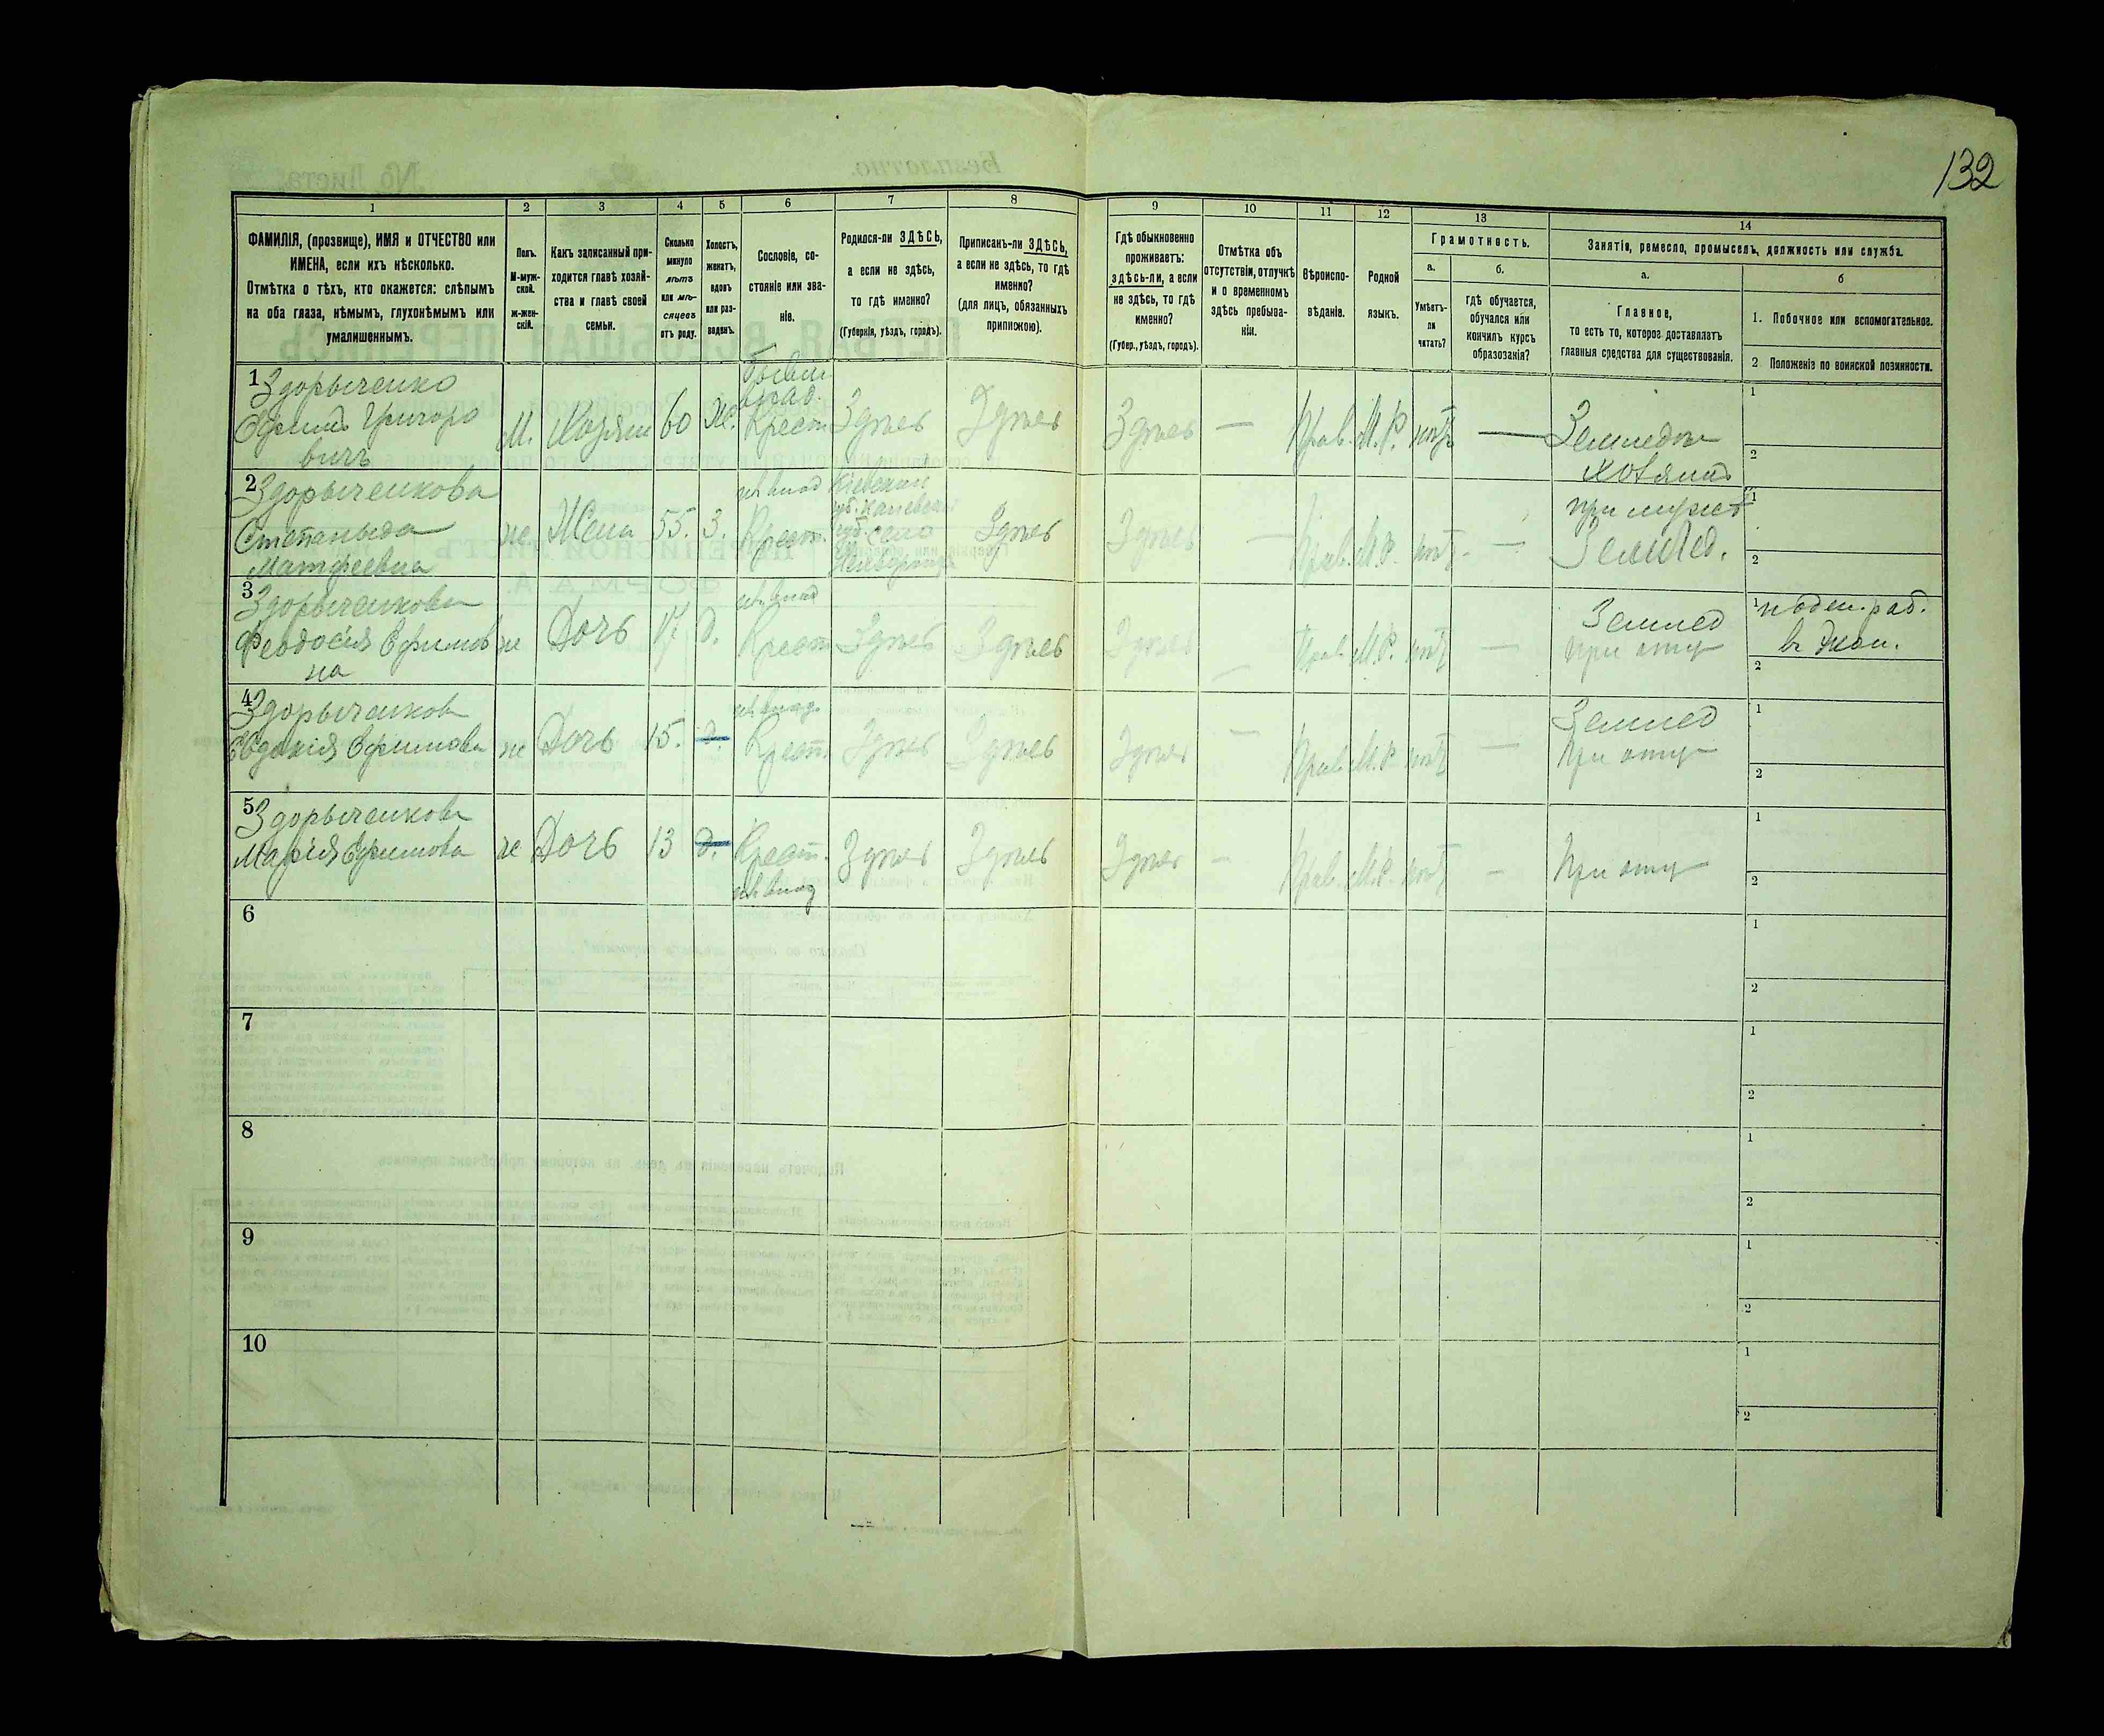 132
1 2 3 4 5 6 7 8 9 10 11 12 13 14
ФАМИЛІЯ, (прозвище), ИМЯ и ОТЧЕСТВО или
ИМЕНА, если ихъ нѣсколько.
Отмѣтка о тѣхъ, кто окажется: слѣпымъ
на оба глаза, нѣмымъ, глухонѣмымъ или
умалишеннымъ.
Полъ.
М-муж-
ской.
ж-жен-
скій.
Какъ записанный при-
ходится главѣ хозяй-
ства и главѣ своей
семьи.
Сколько
минуло
лѣтъ
или мѣ-
сяцевъ
отъ роду.
Холостъ,
женатъ,
вдовъ
или раз-
веденъ.
Сословіе, со-
стояніе или зва-
ніе.
Родился-ли ЗДѢСЬ,
а если не здѣсь,
то гдѣ именно?
(Губернія, уѣздъ, городъ).
Приписанъ-ли ЗДѢСЬ,
а если не здѣсь, то гдѣ
именно?
(для лицъ, обязанныхъ
припискою).
Гдѣ обыкновенно
проживаетъ:
здѣсь-ли, а если
не здѣсь, то гдѣ
именно?
(Губер., уѣздъ, городъ).
Отмѣтка объ
отсутствіи, отлучкѣ
и о временномъ
здѣсь пребыва-
ніи.
Вѣроиспо-
вѣданіе.
Родной
языкъ.
Грамотность.
а.
Умѣетъ-
ли
читать?
б.
гдѣ обучается,
обучался или
кончилъ курсъ
образованія?
Занятіе, ремесло, промыселъ, должность или служба.
а.
Главное,
то есть то, которое доставляетъ
главныя средства для существованія.
б
1. Побочное или вспомогательное.
2 Положеніе по воинской повинности.
1 Здорыченко
Ефимъ Григоро
вичъ
М.
Хозяин
60
Ж.
Крест
Здѣсь
Здѣсь
Здѣсь
—
Прав.
М.Р.
нѣтъ
—
Хозяинъ
1
2
2 Здорыченкова
Степанида
Матфеевна
же
Жена
55.
З.
Крест.
Кіевская
село
Здѣсь
Здѣсь
—
Прав.
М.Р.
нѣтъ
—
при мужѣ
Землед.
1
2
3 Здорыченкова
Феодосія Ефимов
на
же
Дочь
17
Д.
Крест
Здѣсь
Здѣсь
Здѣсь
—
Прав.
М.Р.
нѣтъ
—
Землед
при отцѣ
1 поден. раб.
в Экон.
2
4 Здорыченкова
Евдокія Ефимова
же
Дочь
15.
Д.
Крест.
Здѣсь
Здѣсь
Здѣсь
—
Прав.
М.Р.
нѣтъ
—
Землед
При отцѣ
1
2
5 Здорыченкова
Марія Ефимова
же
Дочь
13
Д.
Крест.
Здѣсь
Здѣсь
Здѣсь
—
Прав.
М.Р.
нѣтъ
—
При отцѣ
1
2
6
1
2
7
1
2
8
1
2
9
1
2
10
1
2